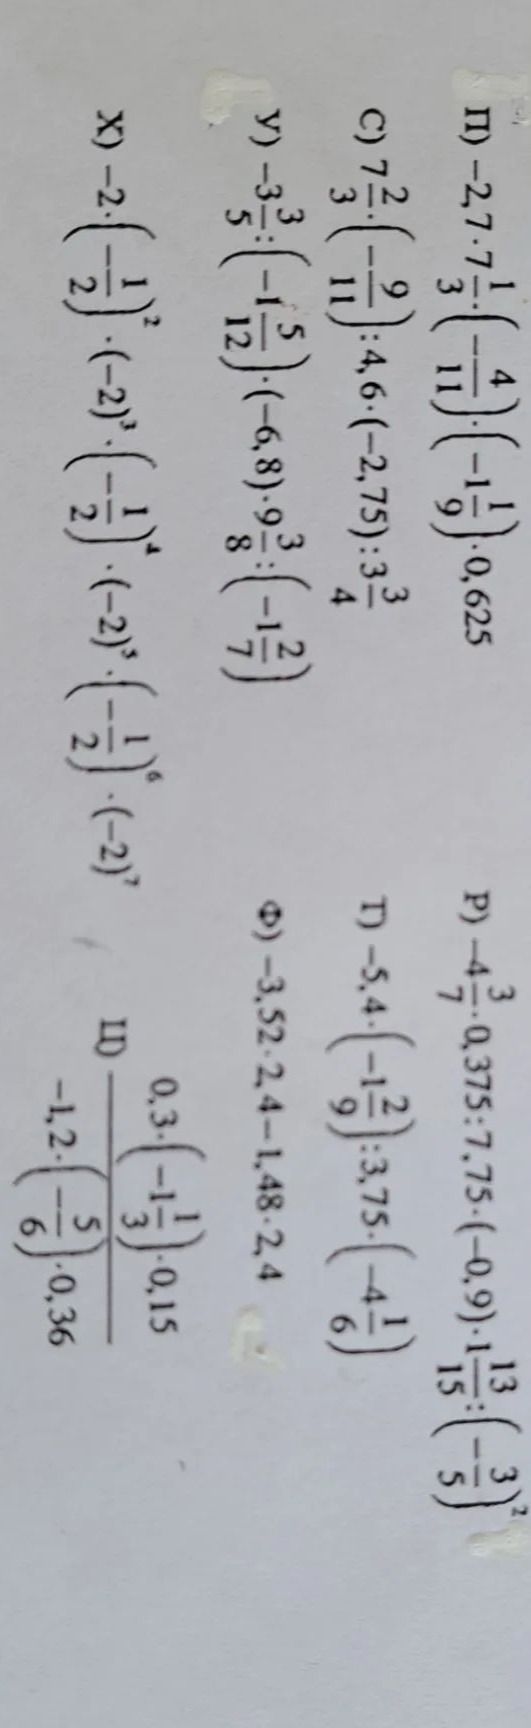 П) −2,7·7 1/3·(−4/11)·(−1 1/9)·0,625
Р) −4 3/7·0,375:7,75·(−0,9)·1 13/15:(−3/5)²
С) 7 2/3·(−9/11):4,6·(−2,75):3 3/4
Т) −5,4·(−1 2/9):3,75·(−4 1/6)
У) −3 3/5:(−1 5/12)·(−6,8)·9 3/8:(−1 2/7)
Ф) −3,52·2,4−1,48·2,4
Х) −2·(−1/2)²·(−2)³·(−1/2)⁴·(−2)⁵·(−1/2)⁶·(−2)⁷
Ц) 0,3·(−1 1/3)·0,15
−1,2·(−5/6)·0,36